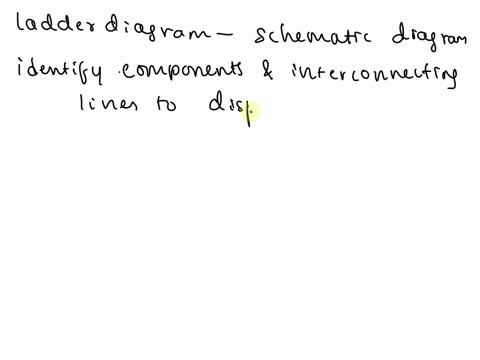 ladder diagram – schematic diagram
identify components & interconnecting
lines to disp